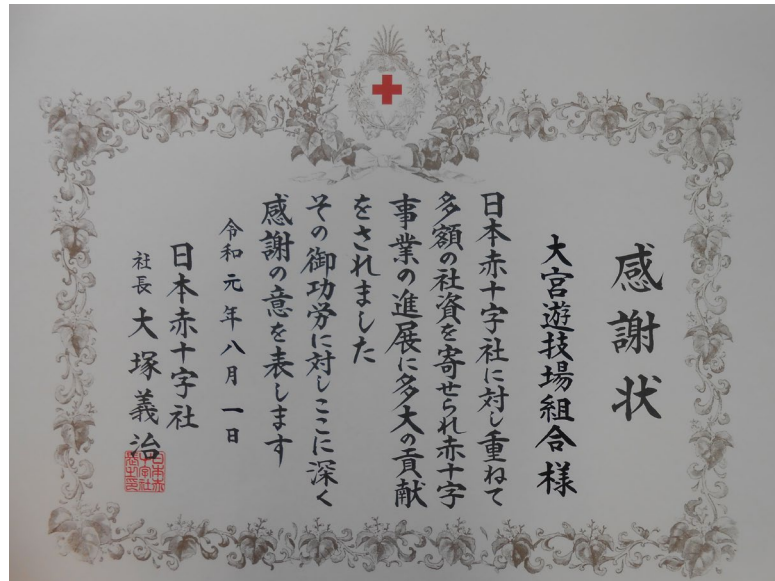 感謝状
大宮遊技場組合様
日本赤十字社に対し重ねて
多額の社資を寄せられ赤十字
事業の進展に多大の貢献
をされました
その御功労に対しここに深く
感謝の意を表します
令和元年八月一日
日本赤十字社
社長 大塚義治